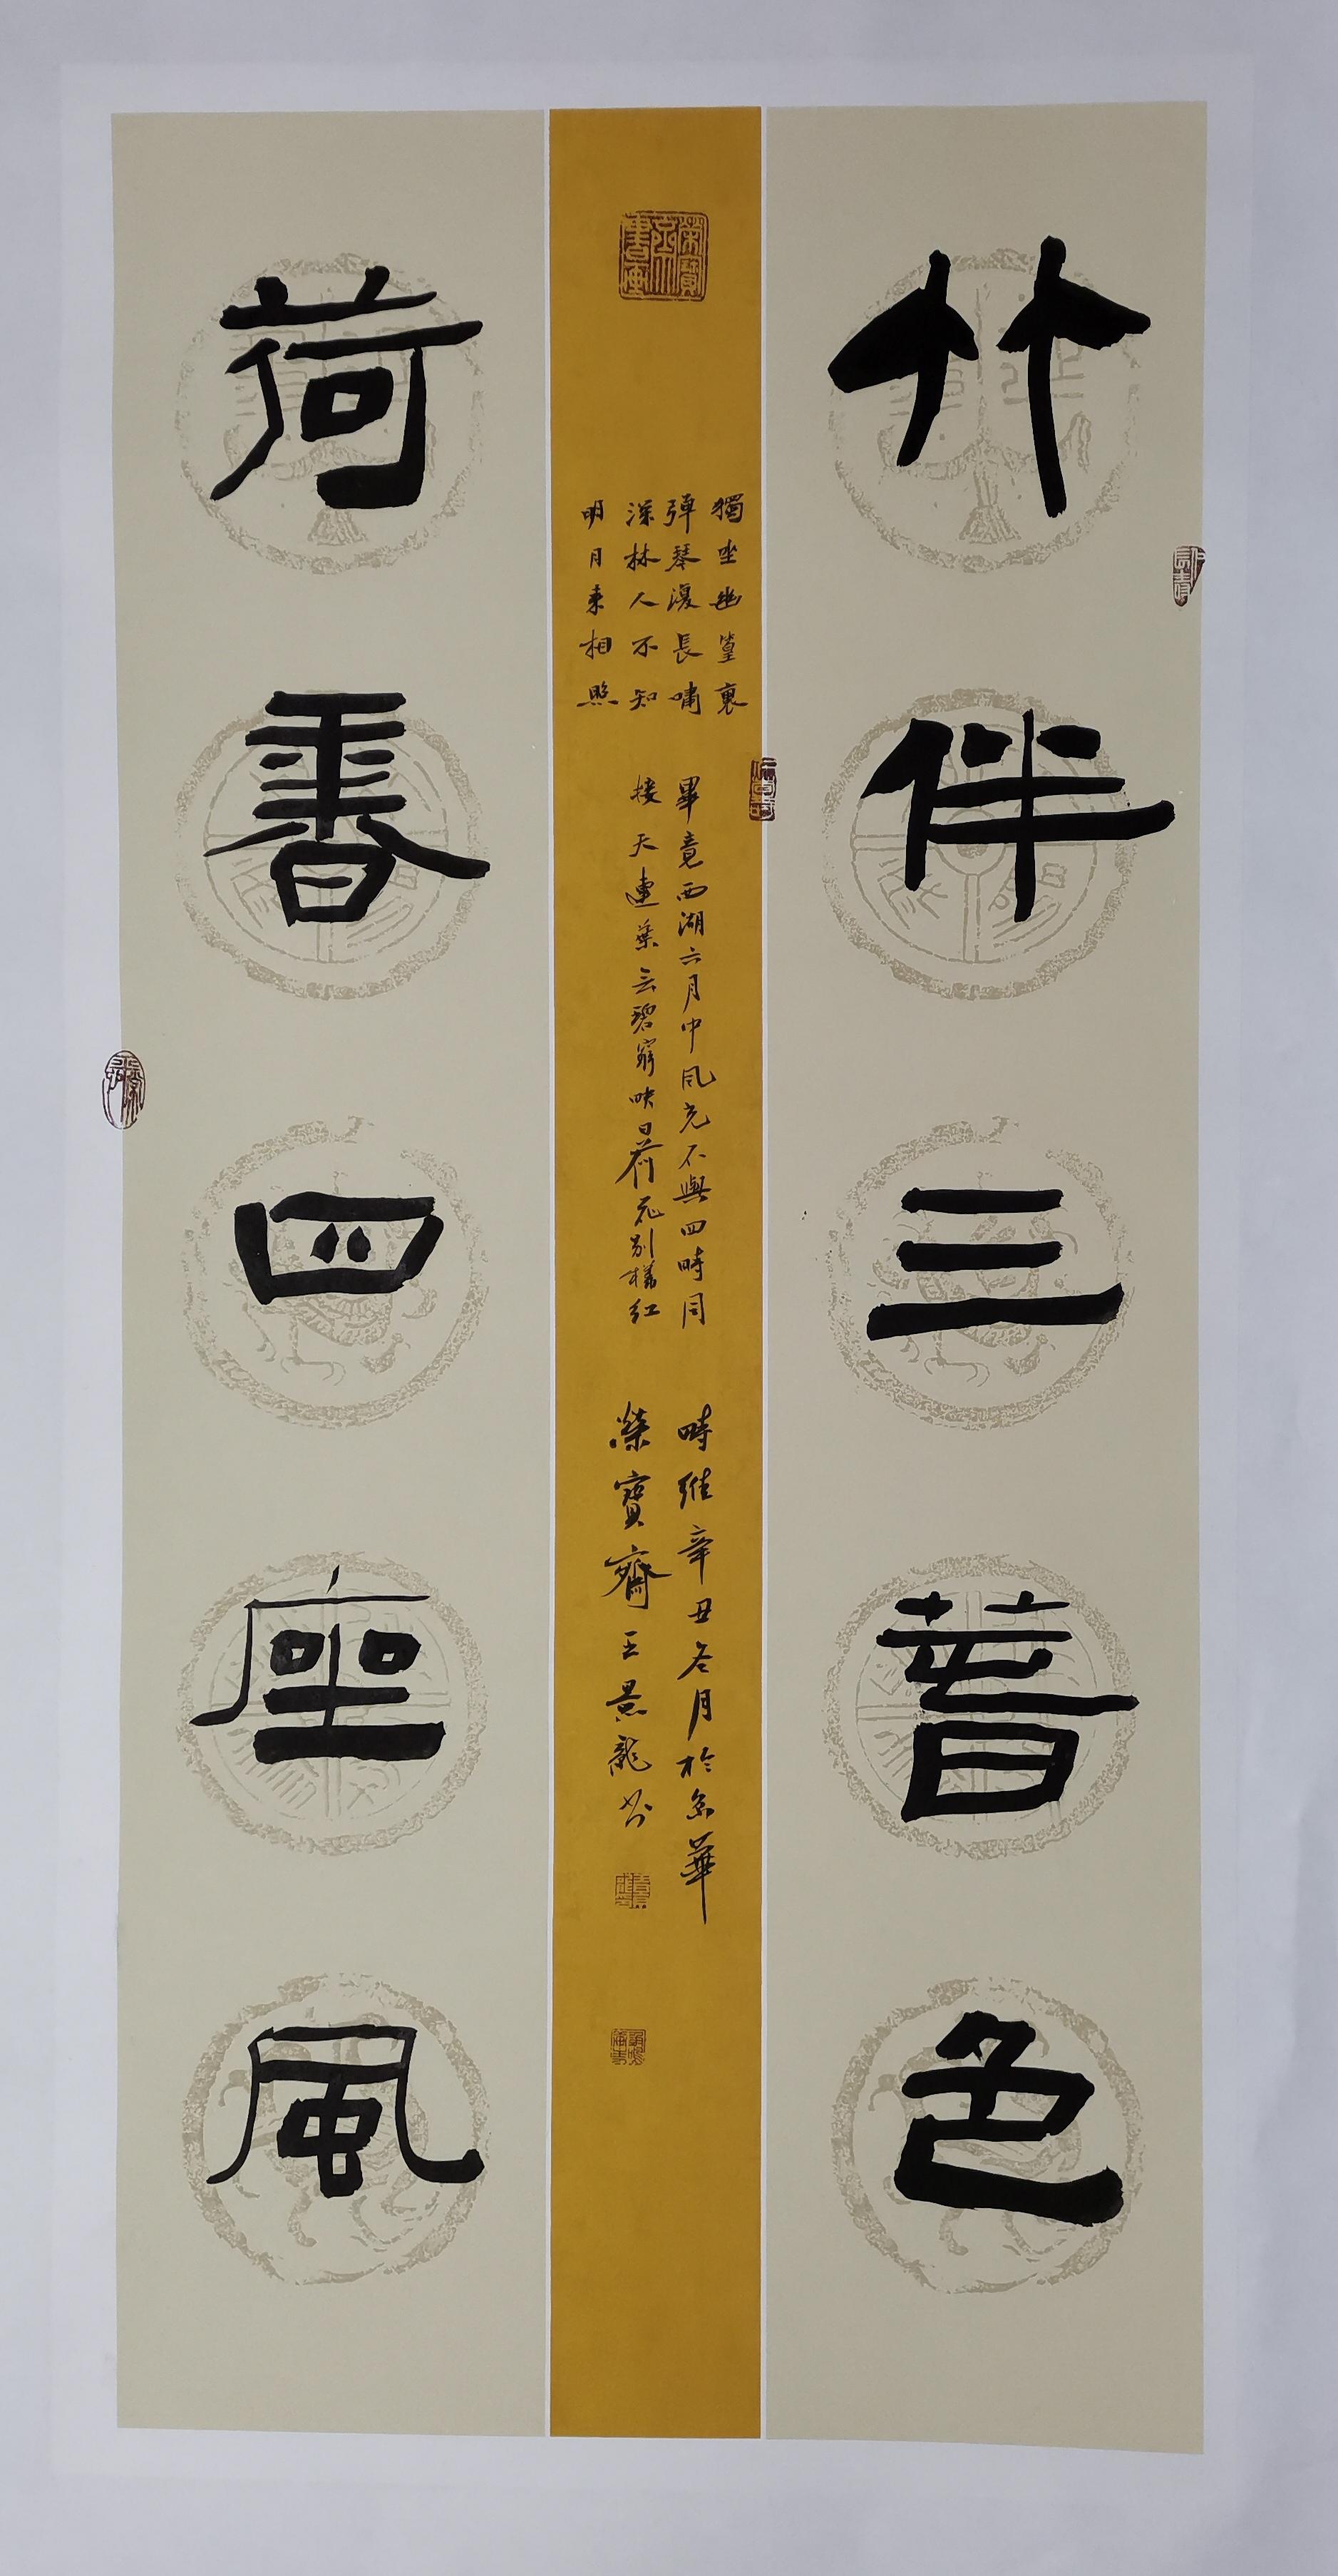 竹伴三春色
獨坐幽篁裏
彈琴復長嘯
深林人不知
明月來相照
畢竟西湖六月中风光不與四時同
接天連葉无碧窮映日荷花别樣红
時維辛丑冬月於京華
榮寶齋王景龍书
荷香四座風